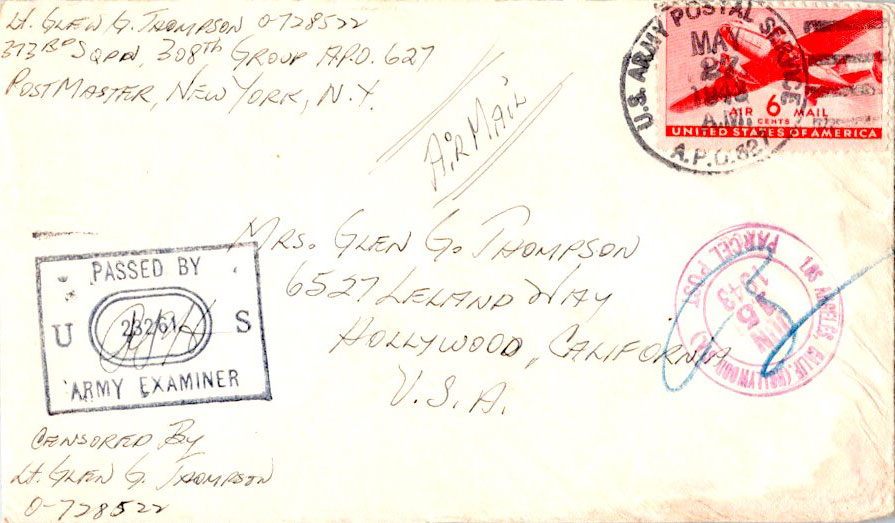 Lt. Glen G. Thompson O-728522
373rd Sqdn, 308th Group A.P.O. 627
Postmaster, New York, N.Y.
Air Mail
U.S. ARMY POSTAL SERVICE
MAY
27
1943
A.M.
A.P.O. 627
AIR 6 MAIL
CENTS
UNITED STATES OF AMERICA
Mrs. Glen G. Thompson
6527 Leland Way
Hollywood, California
U.S.A.
PASSED BY
U 23261 S
ARMY EXAMINER
LOS ANGELES, CALIF. (HOLLYWOOD STA.)
JUN
1943
PARCEL POST
Censored By
Lt. Glen G. Thompson
O-728522